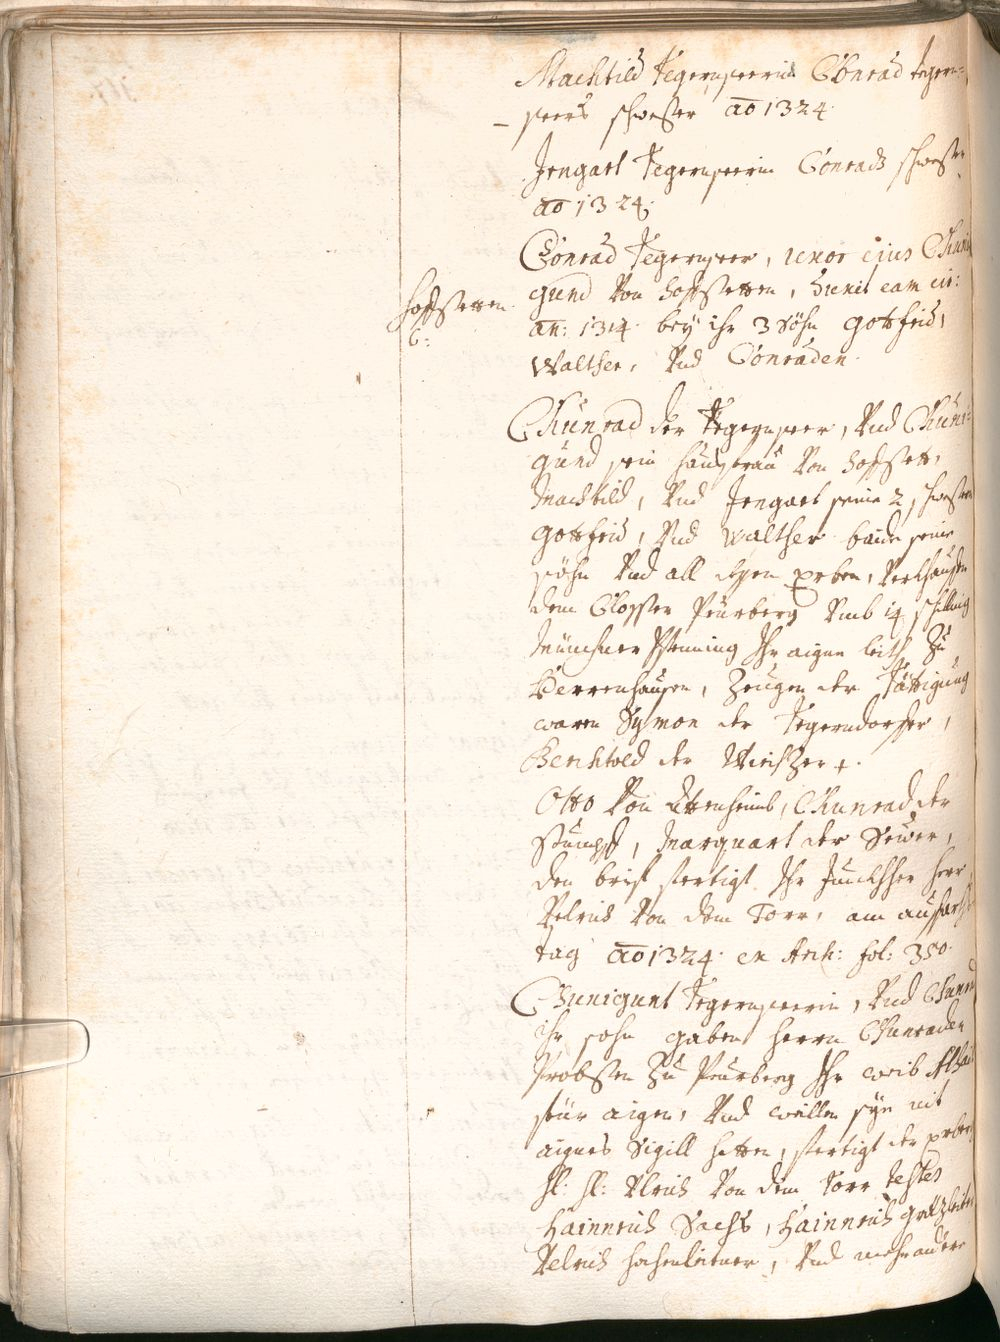 Machtild Tegernseerin Conrad Tegern=
seers schwester ao 1324
Irngart Tegernseerin Conrads schwester
ao 1324.
Conrad Tegernseer, uxor eius Chuni
gund von hoffstetten, duxit eam cir:
an: 1314 bey ihr 3 Söhn Gottfrid,
Walther, Und Conraden.
hoffstetten
C:
Chunrad der Tegernseer, Und Chuni=
gund sein haußfrau Von hoffstett,
Machtild, Und Irngart seine 2 schwester
Gottfrid, Und Walther baide seine
söhn Und all dessen erben, Verkhauffen
dem Closster Peurberg Umb 14 schilling
Münchner Pfenning Ihr aigne leith Zu
Berrenhausen, Zeugen der Tättigung
waren Symon der Tegerndorffer,
Berchtold der
Otto Von Uttenheimb, Chunrad der
Stumpf, Marquart der Seuer,
den brief fertigt Ihr Junckher herr
Velrich Von dem Torr, am auffarth
tag ao 1324. ex Arch: fol: 350.
Chunigunt Tegernseerin, Und Chunrad
Ihr sohn gaben herrn Chunraden
Probsten Zu Peurberg Ihr weib
für aigen, Und weillen sye nit
aignes Sigill hetten, fertigt der
Hl: Hl: Ulrich Von dem Torr testes
Hainnrich Sachs, Hainnrich
Velrich hochenleitner, Und mehr andere